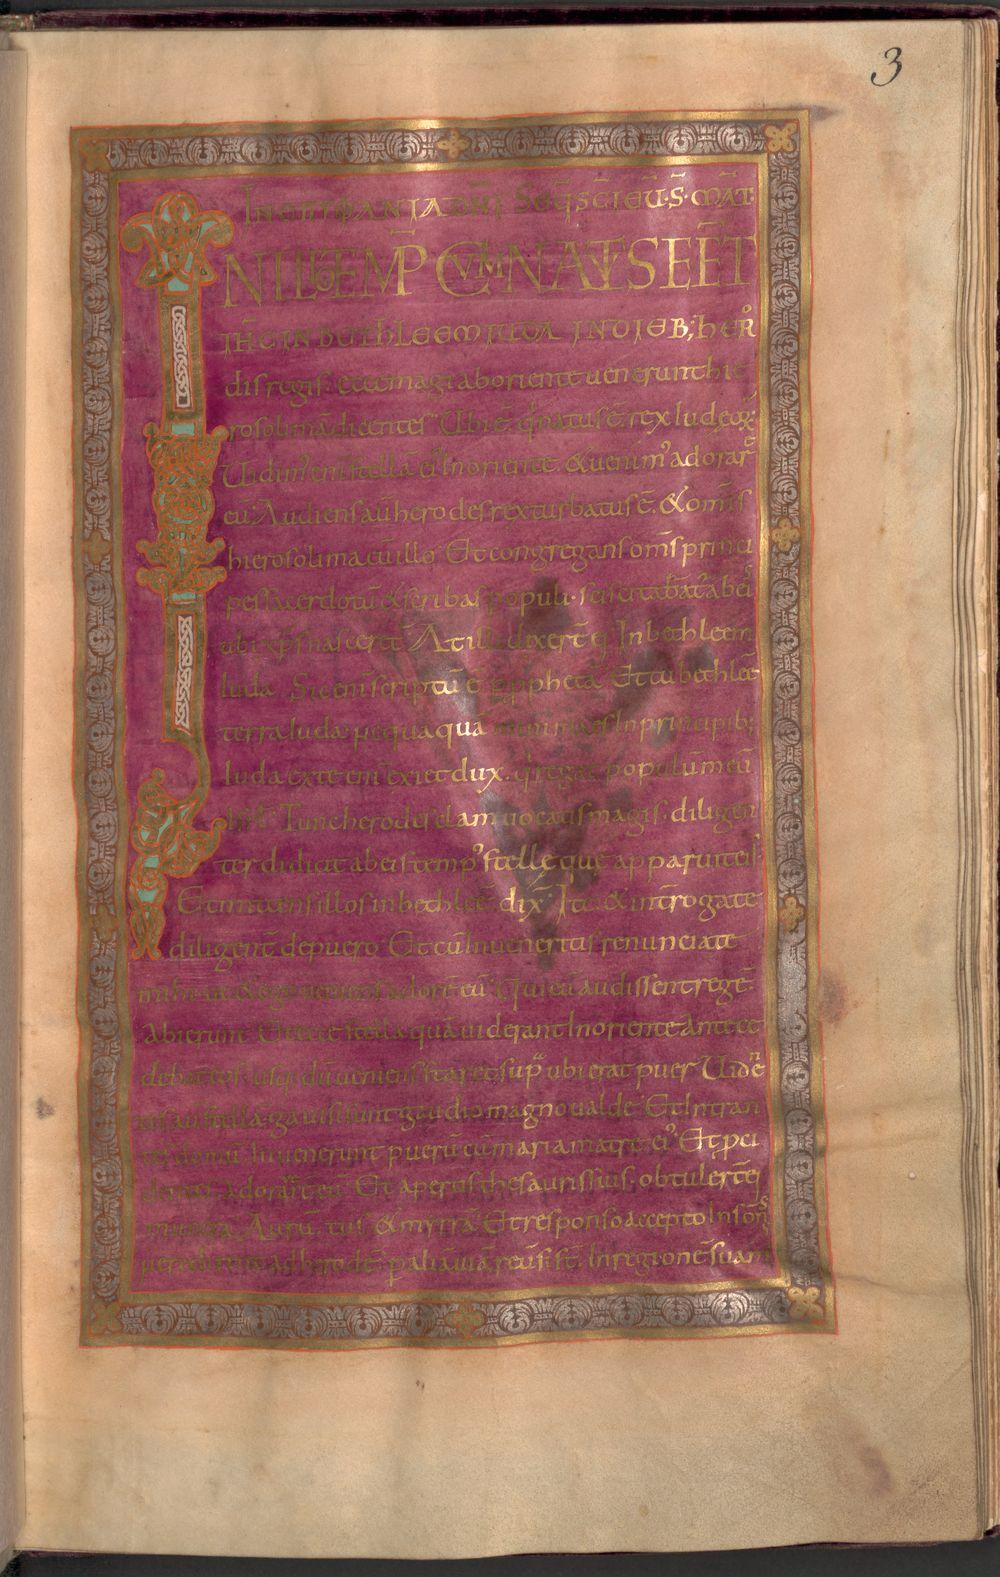 3
IN EPIPHANIA DNI SEQ̄ SC̄I EŪ. S. MAT̄.
IN ILLO TEMP̄ CVM NATVS EET̄
IHC IN BETHLEEM IUDA IN DIEB; HERO
dis regis. ecce magi ab oriente uenerunt hie
rosolimā dicentes. Ubi ē q̄ natus ē rex Iudeoꝝ.
Uidimꝰ eni stellā eiꝰ In oriente. & uenimꝰ adorare
eū. Audiens aū herodes rex turbatus ē. & omīs
hierosolima cū illo. Et congregans om̄s princi
pes sacerdotū & scribas populi. sciscitabat̄ ab eis
ubi xp̄s nasceret̄. At illi dixer̄t ei. In bethleem
Iuda. Sic eni scriptū ē p̄ pphetā. Et tu bethleē
terra Iuda. nequaquā minima es In principib;
Iuda. ex te eni exiet dux. q̄ regat populū meū
isrl. Tunc herodes clam uocatis magis. diligen
ter didicit ab eis tempꝰ stelle que apparuit eis.
Et mittens illos in bethleē. dix̄. Ite & interrogate
diligent̄ de puero. Et cū Inueneritis renunciate
mihi ut & ego ueniens adorē eū. Qui cū audissent regē.
Abierunt. Et ecce stella quā uiderant In oriente antece
debat eos. usq; dū ueniens staret sup̄ ubi erat puer. Uiden
tes aū stellā. gauisi sunt gaudio magno ualde. Et Intran
tes domū. Inuenerunt puerū cū maria matre eiꝰ. Et p̄ci
dentes adorauer̄t eū. Et apertis thesauris suis. obtuler̄t ei
munera. Aurū. tus. & myrrā. Et responso accepto In somnis
ne redirent ad herodē. p aliā uiā reūsi st̄. In regionē suam